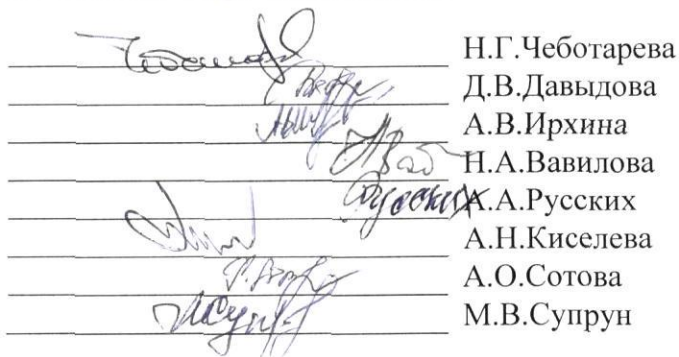 Н.Г.Чеботарева
Д.В.Давыдова
А.В.Ирхина
Н.А.Вавилова
Русских А.А.Русских
А.Н.Киселева
А.О.Сотова
М.В.Супрун